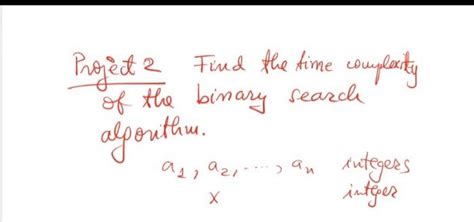 Project 2 Find the time complexity
of the binary search
algorithm.
a₁, a₂, ...., aₙ integers
x integer